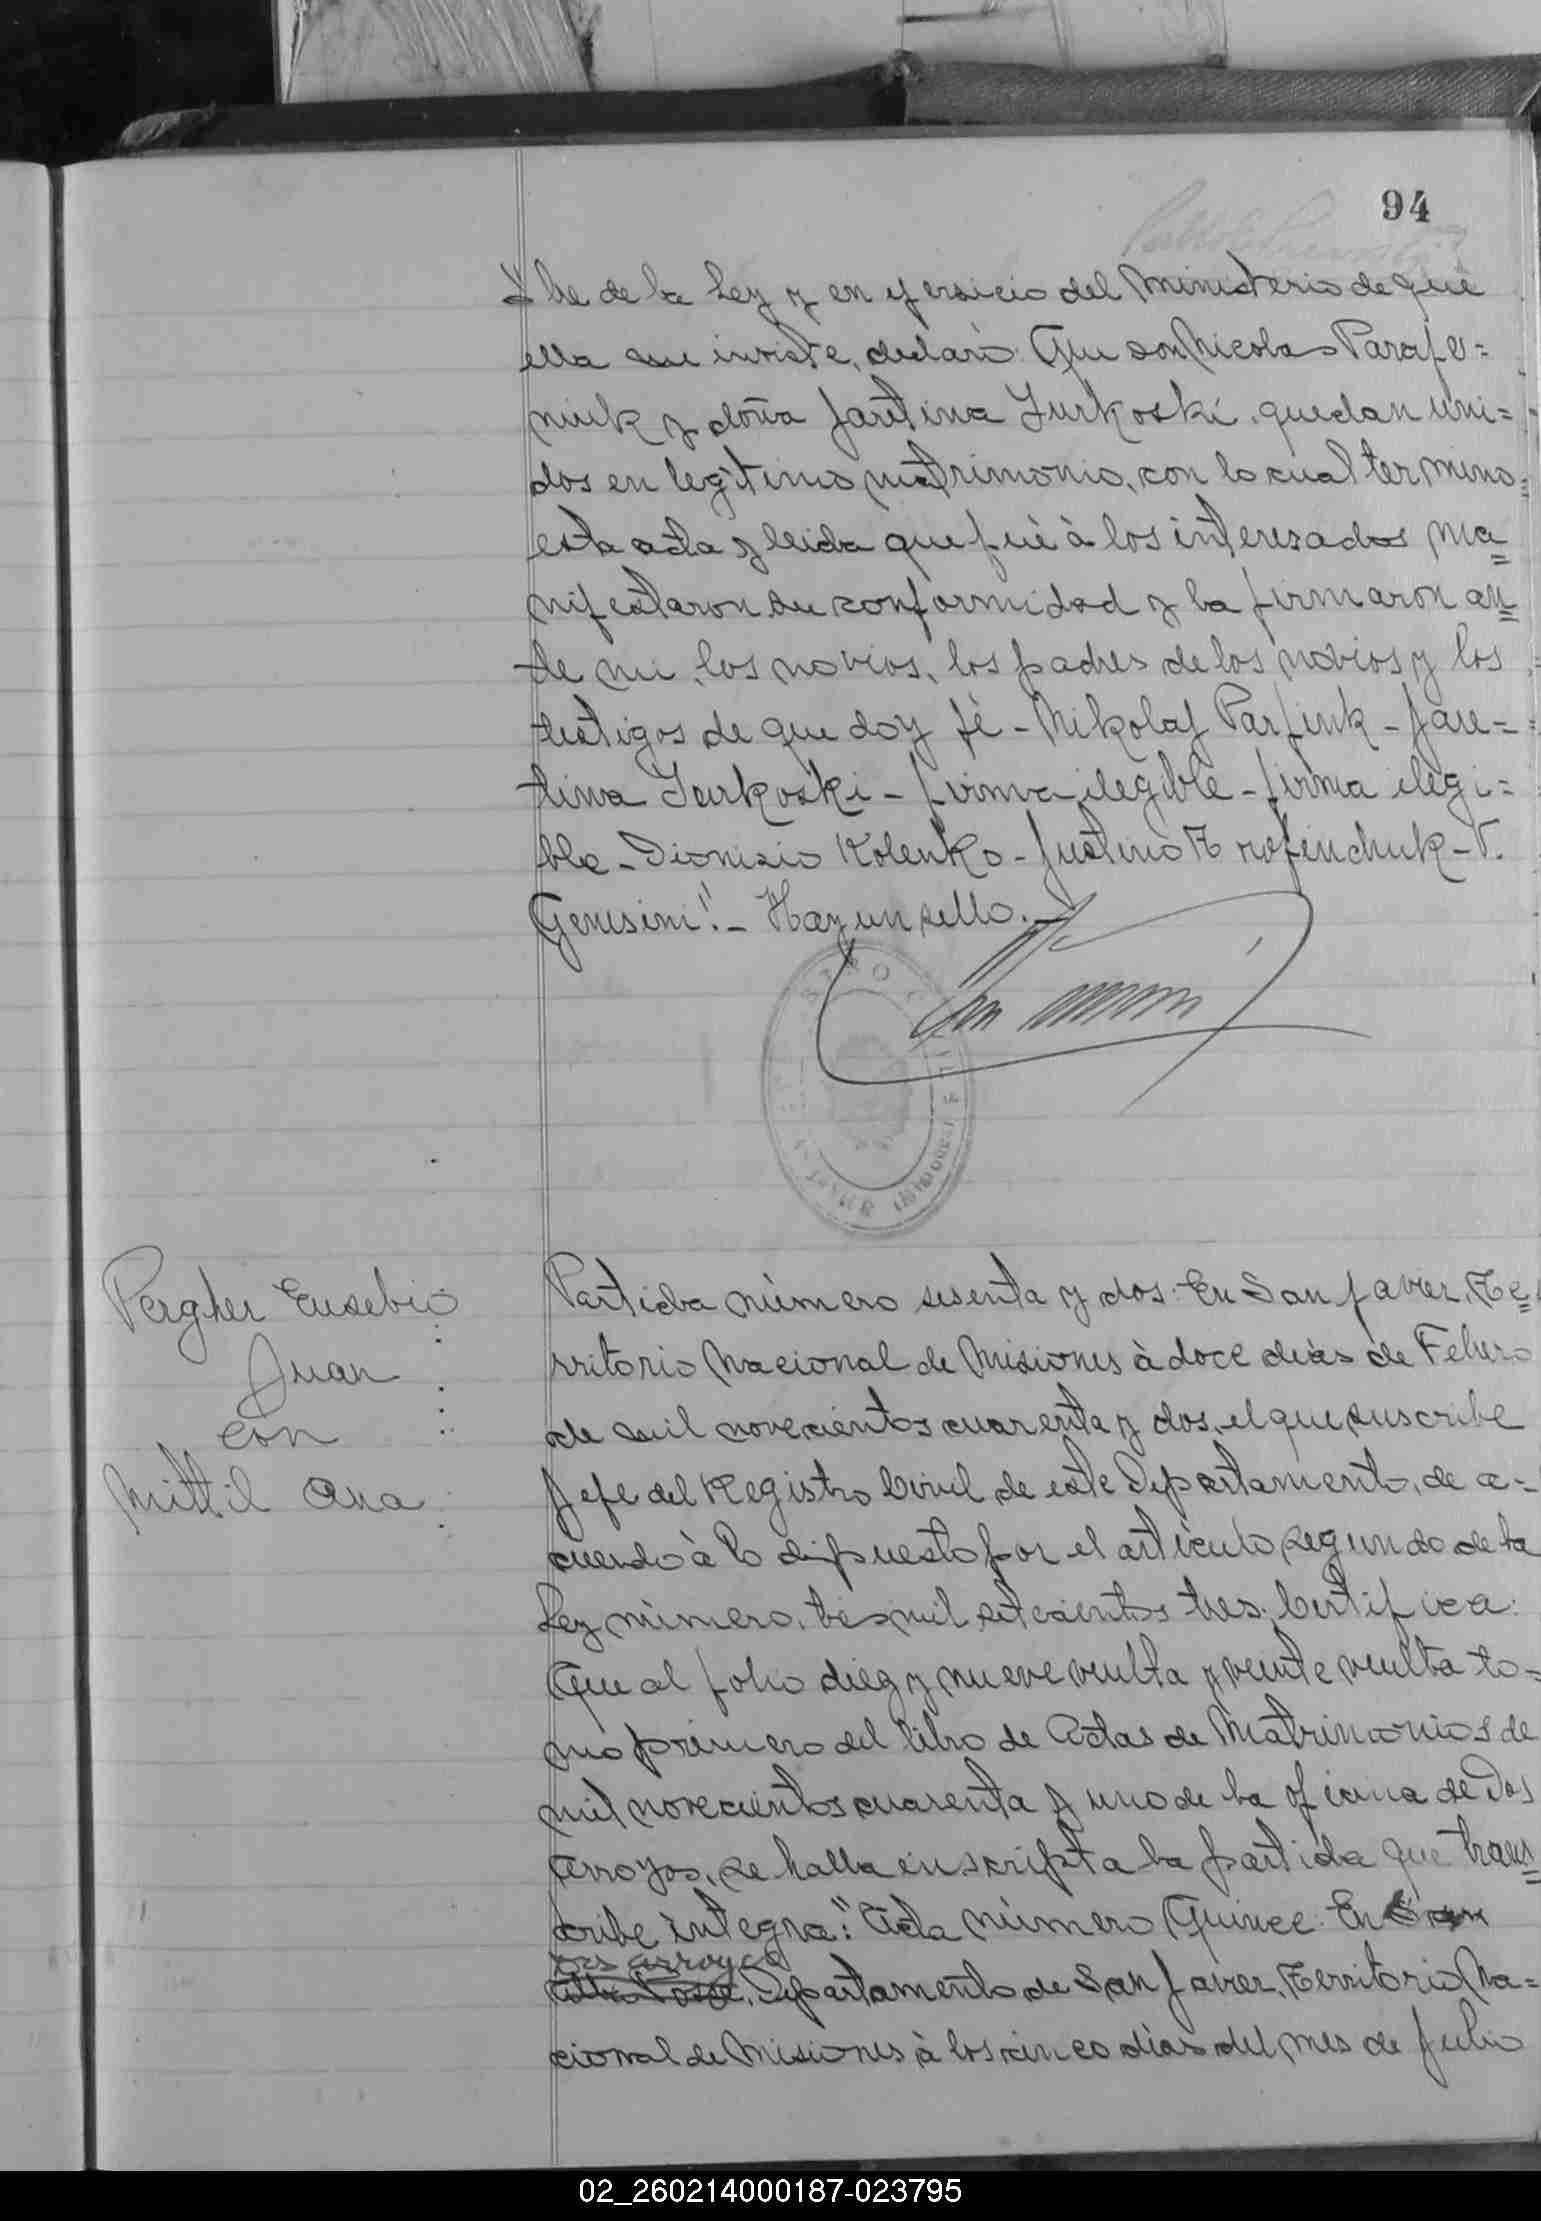 94
be de la Ley y en ejersicio del Ministerio de que
ella me inviste, declaró: Que don Nicolas Parafe=
niuk y doña Jaretina Jurkoski, quedan uni=
dos en legitimo matrimonio, con lo cual termino
esta acta y leida que fué à los interesados ma=
nifestaron su conformidad y la firmaron an=
te mi, los novios, los padres de los novios y los
testigos de que doy fé - Nikolaj Parfink - Jare=
tina Jurkoski - firma ilegible - firma ilegi=
ble - Dionisio Kolenko - Justino Trofinchuk - V.
Genesini". - Hay un sello. -
Pergher Eusebio
Juan
con
Mittil Ana
Partida número sesenta y dos: En San Javier, Te=
rritorio Nacional de Misiones à doce dias de Febrero
de mil novecientos cuarenta y dos, el que suscribe
Jefe del Registro Civil de este Departamento, de a=
cuerdo à lo dispuesto por el articulo segundo de la
Ley número, tres mil setecientos tres. Certifica:
Que al folio diez y nueve vuelta y veinte vuelta to=
mo primero del libro de Actas de Matrimonios de
mil novecientos cuarenta y uno de la oficina de Dos
Arroyos, se halla inscripta la partida que trans=
cribe integra: "Acta número Quince: En
Dos arroyos
Departamento de San Javier, Territorio Na=
cional de Misiones à los cinco dias del mes de Julio
02_260214000187-023795